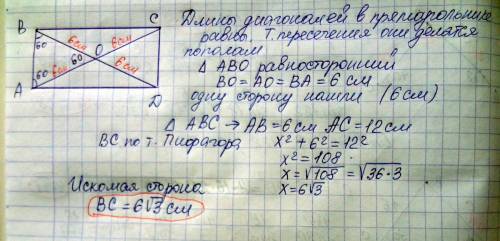 B
C
60
6см
6см
O
60
60
6см
6см
A
D
Длины диагоналей в прямоугольнике
равны, т. пересечения они делятся
пополам
Δ ABO равносторонний
BO = AO = BA = 6 см
одну сторону нашли (6см)
Δ ABC → AB = 6см AC = 12см
BC по т. Пифагора x² + 6² = 12²
x² = 108
x = √108 = √36·3
x = 6√3
Искомая сторона
BC = 6√3 см